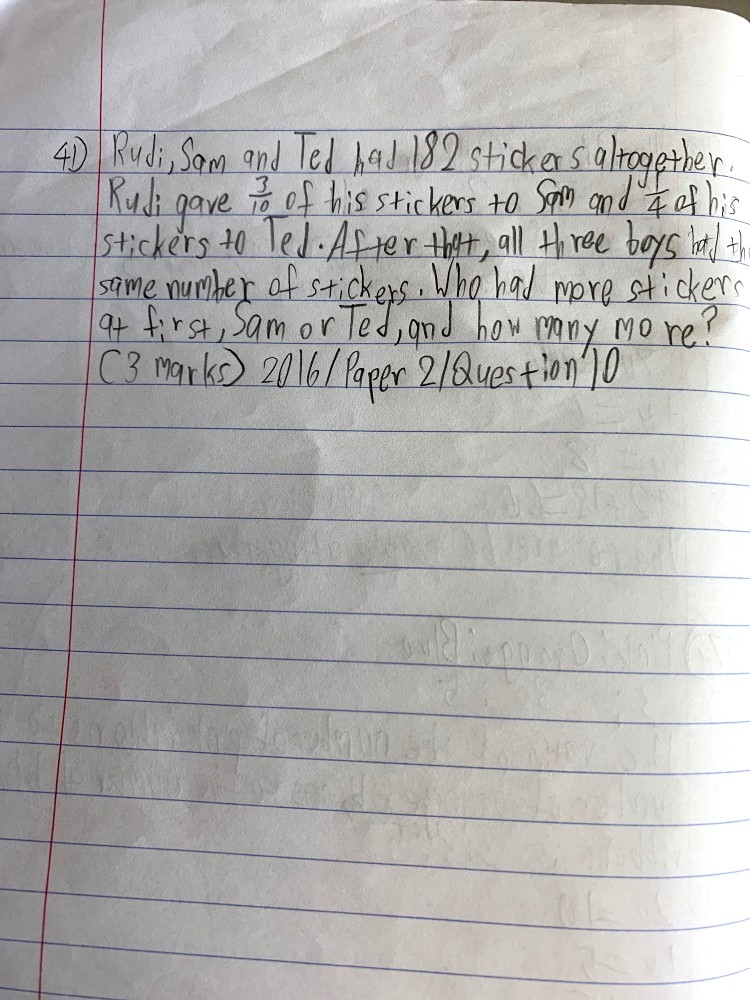 41) Rudi, Sam and Ted had 182 stickers altogether.
Rudi gave 3/10 of his stickers to Sam and 1/4 of his
stickers to Ted. After that, all three boys had the
same number of stickers. Who had more stickers
at first, Sam or Ted, and how many more?
(3 marks) 2016/Paper 2/Question 10